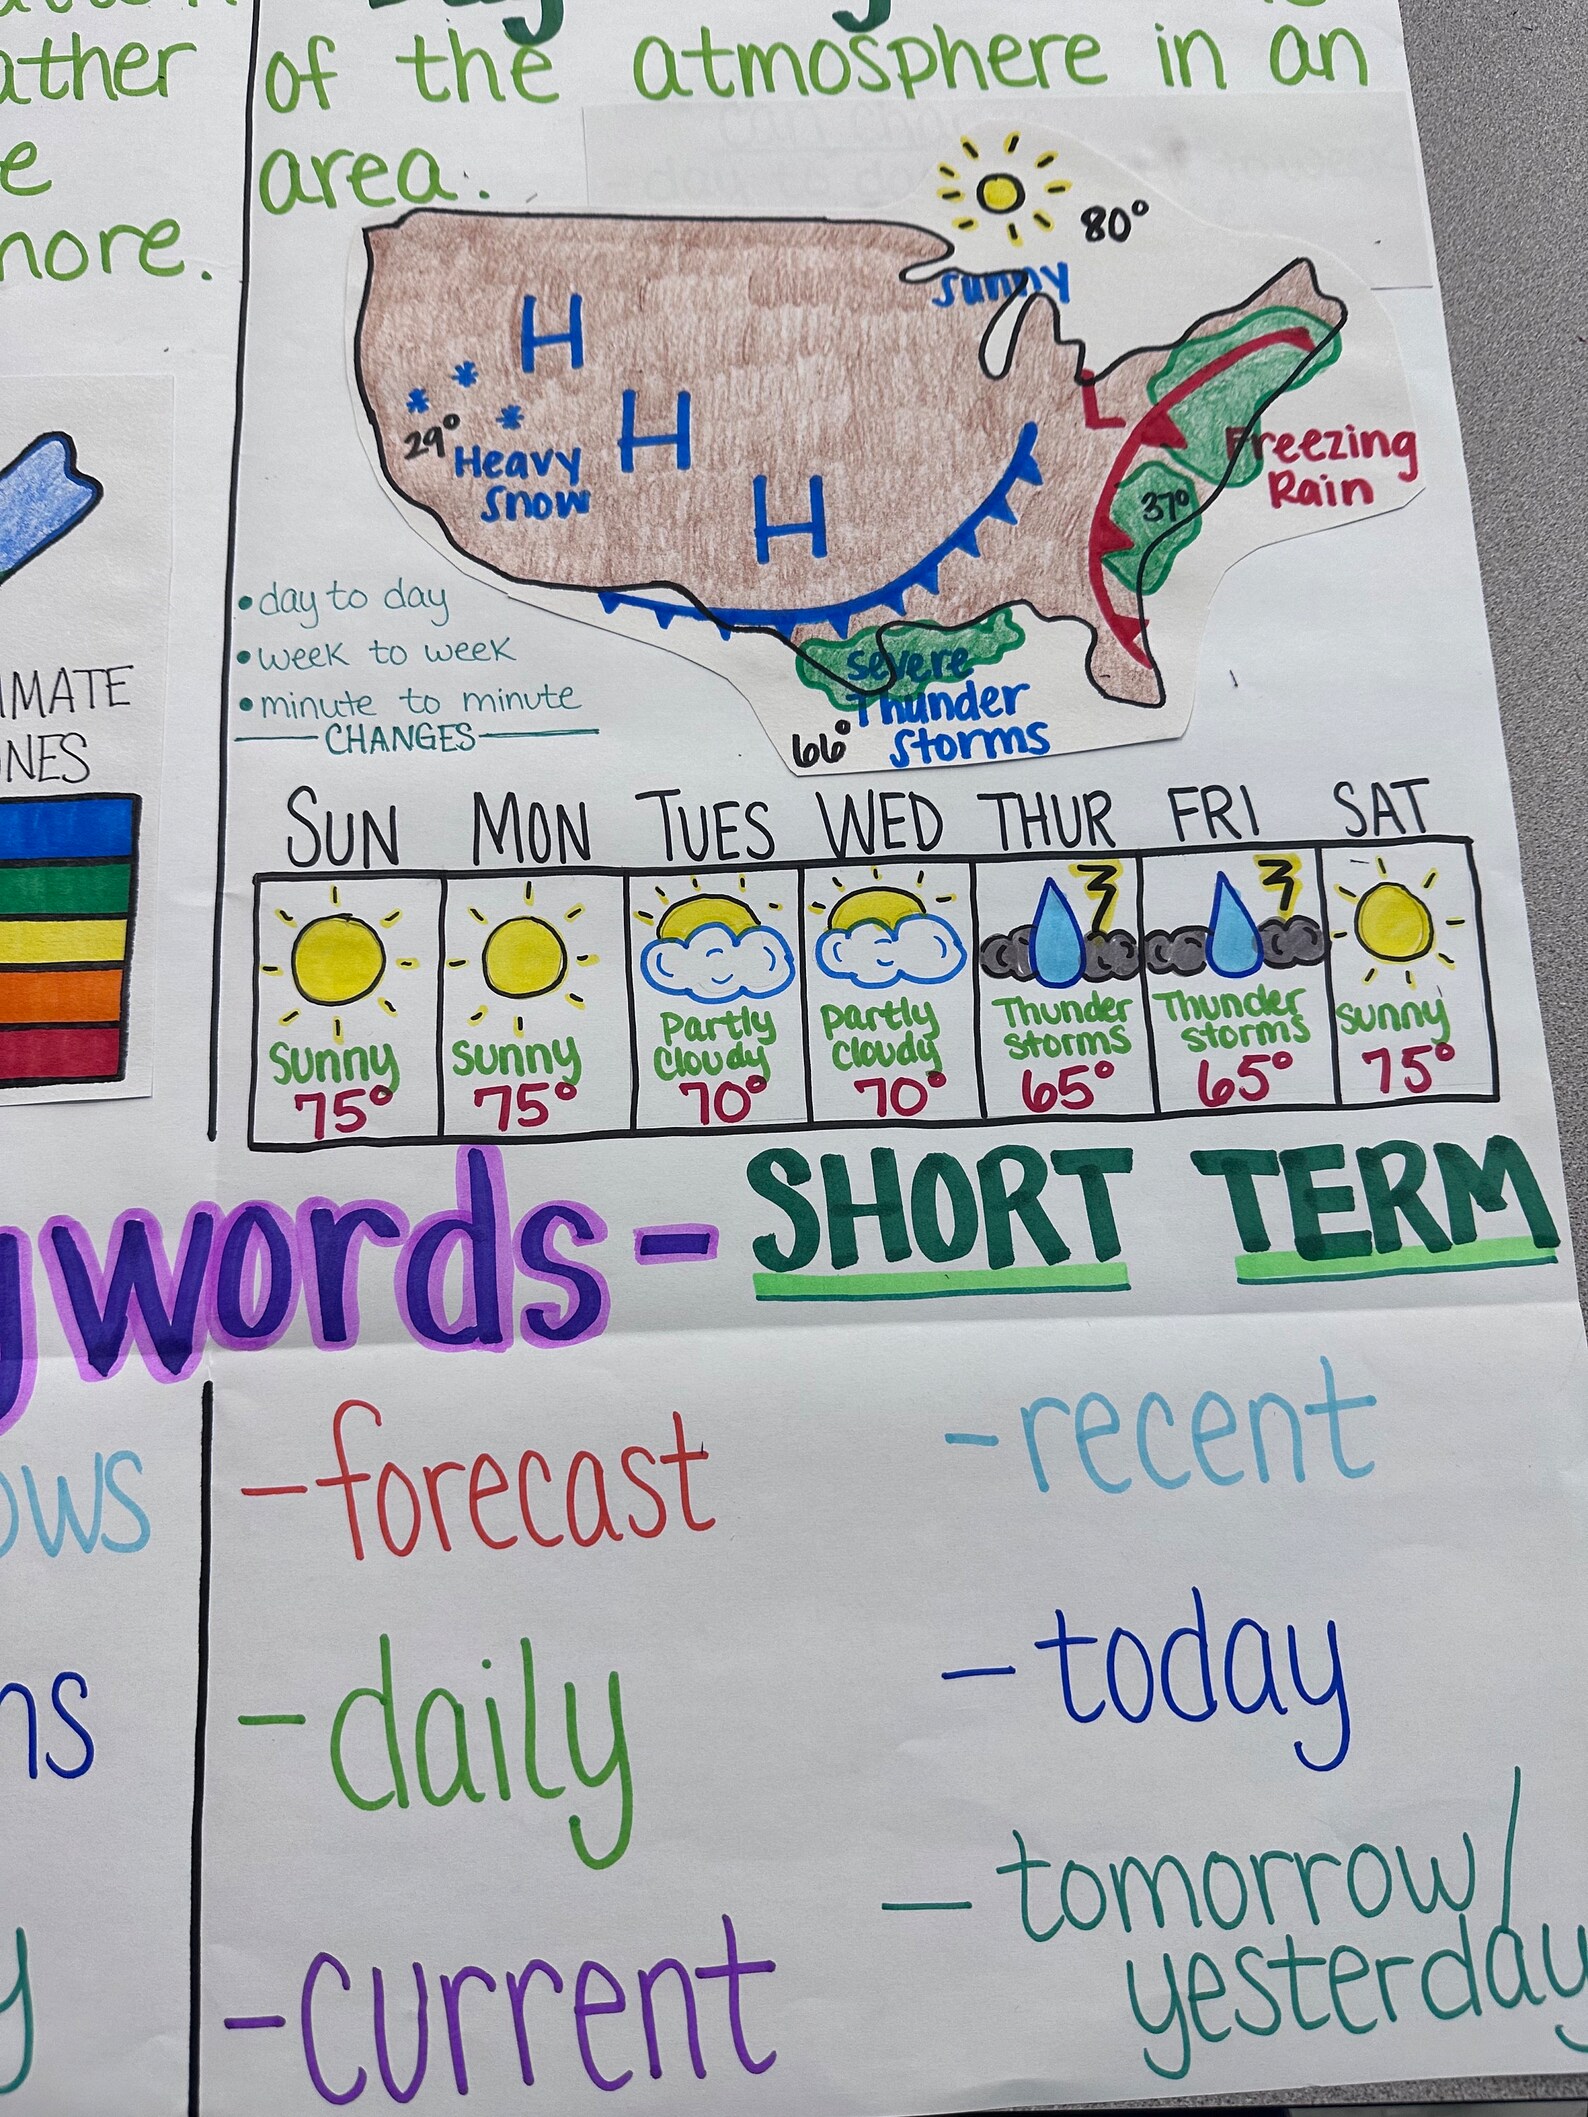 of the atmosphere in an
area.
80°
sunny
H
H
H
29°
Heavy
Snow
L
Freezing
Rain
37°
Severe
Thunder
Storms
66°
• day to day
• week to week
• minute to minute
CHANGES
SUN MON TUES WED THUR FRI SAT
Sunny
75°
Sunny
75°
Partly
Cloudy
70°
Partly
Cloudy
70°
Thunder
storms
65°
Thunder
storms
65°
Sunny
75°
words - SHORT TERM
- forecast
- recent
- daily
- today
- current
- tomorrow/
yesterday
more.